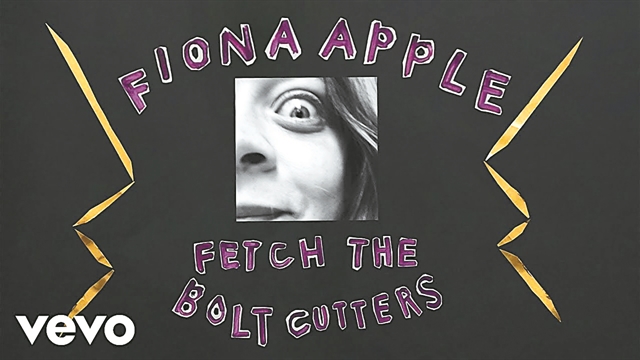 FIONA APPLE
FETCH THE
BOLT CUTTERS
vevo